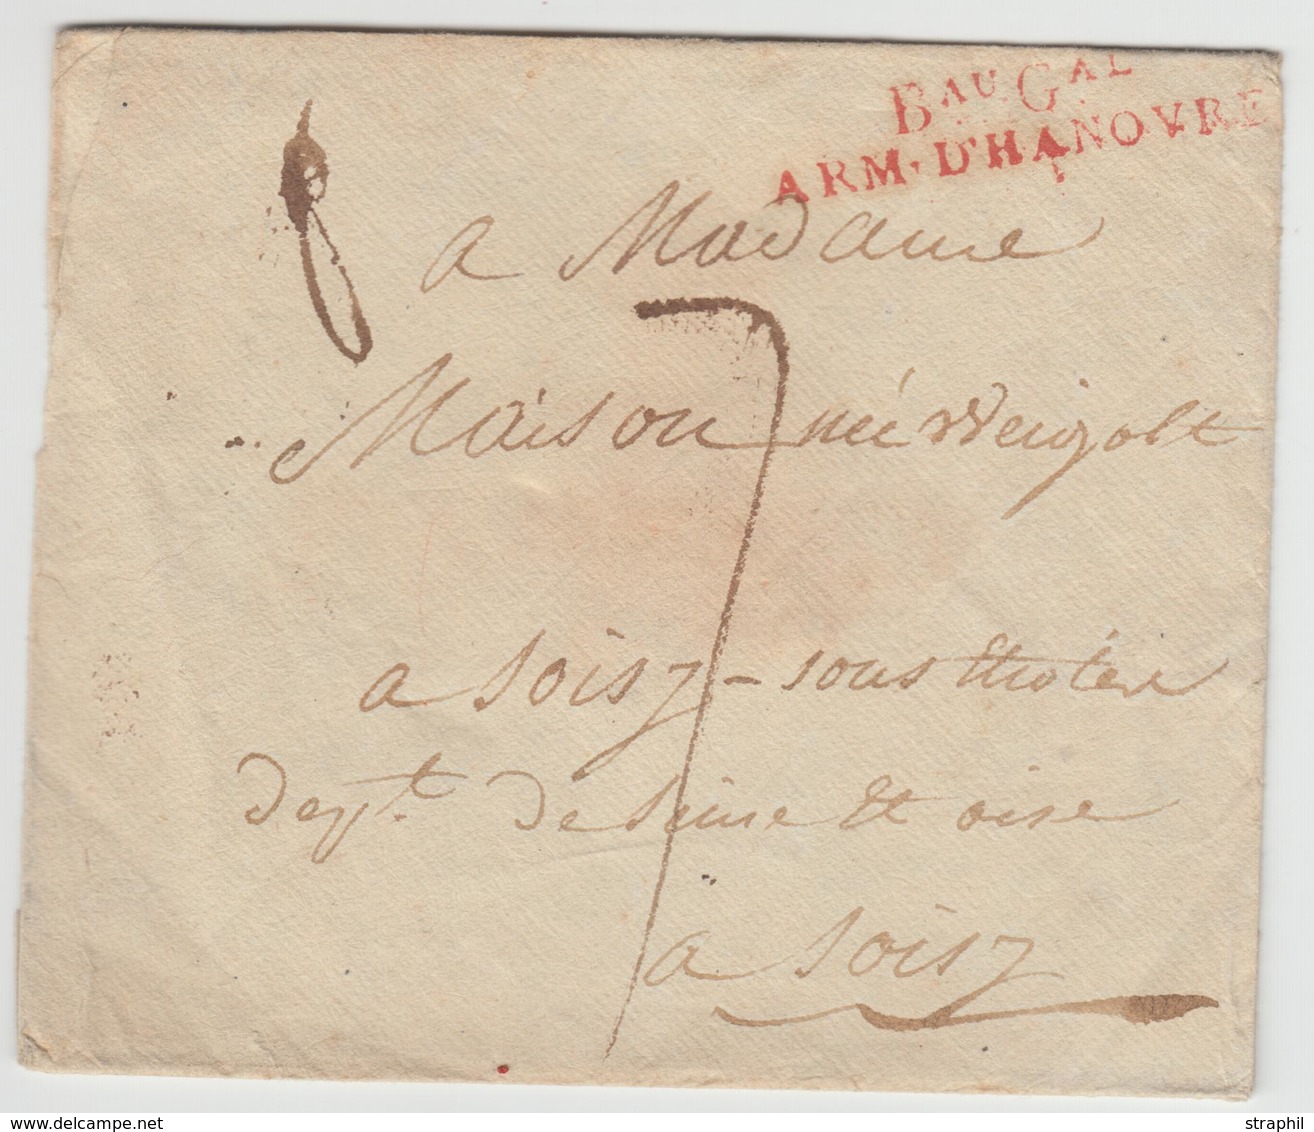 BAU GAL
ARM. D'HANOVRE
a Madame
7
Maison née Weigolt
a Soisy - sous Etiolex
Dept. De Seine et oise
a Soisy
straphil